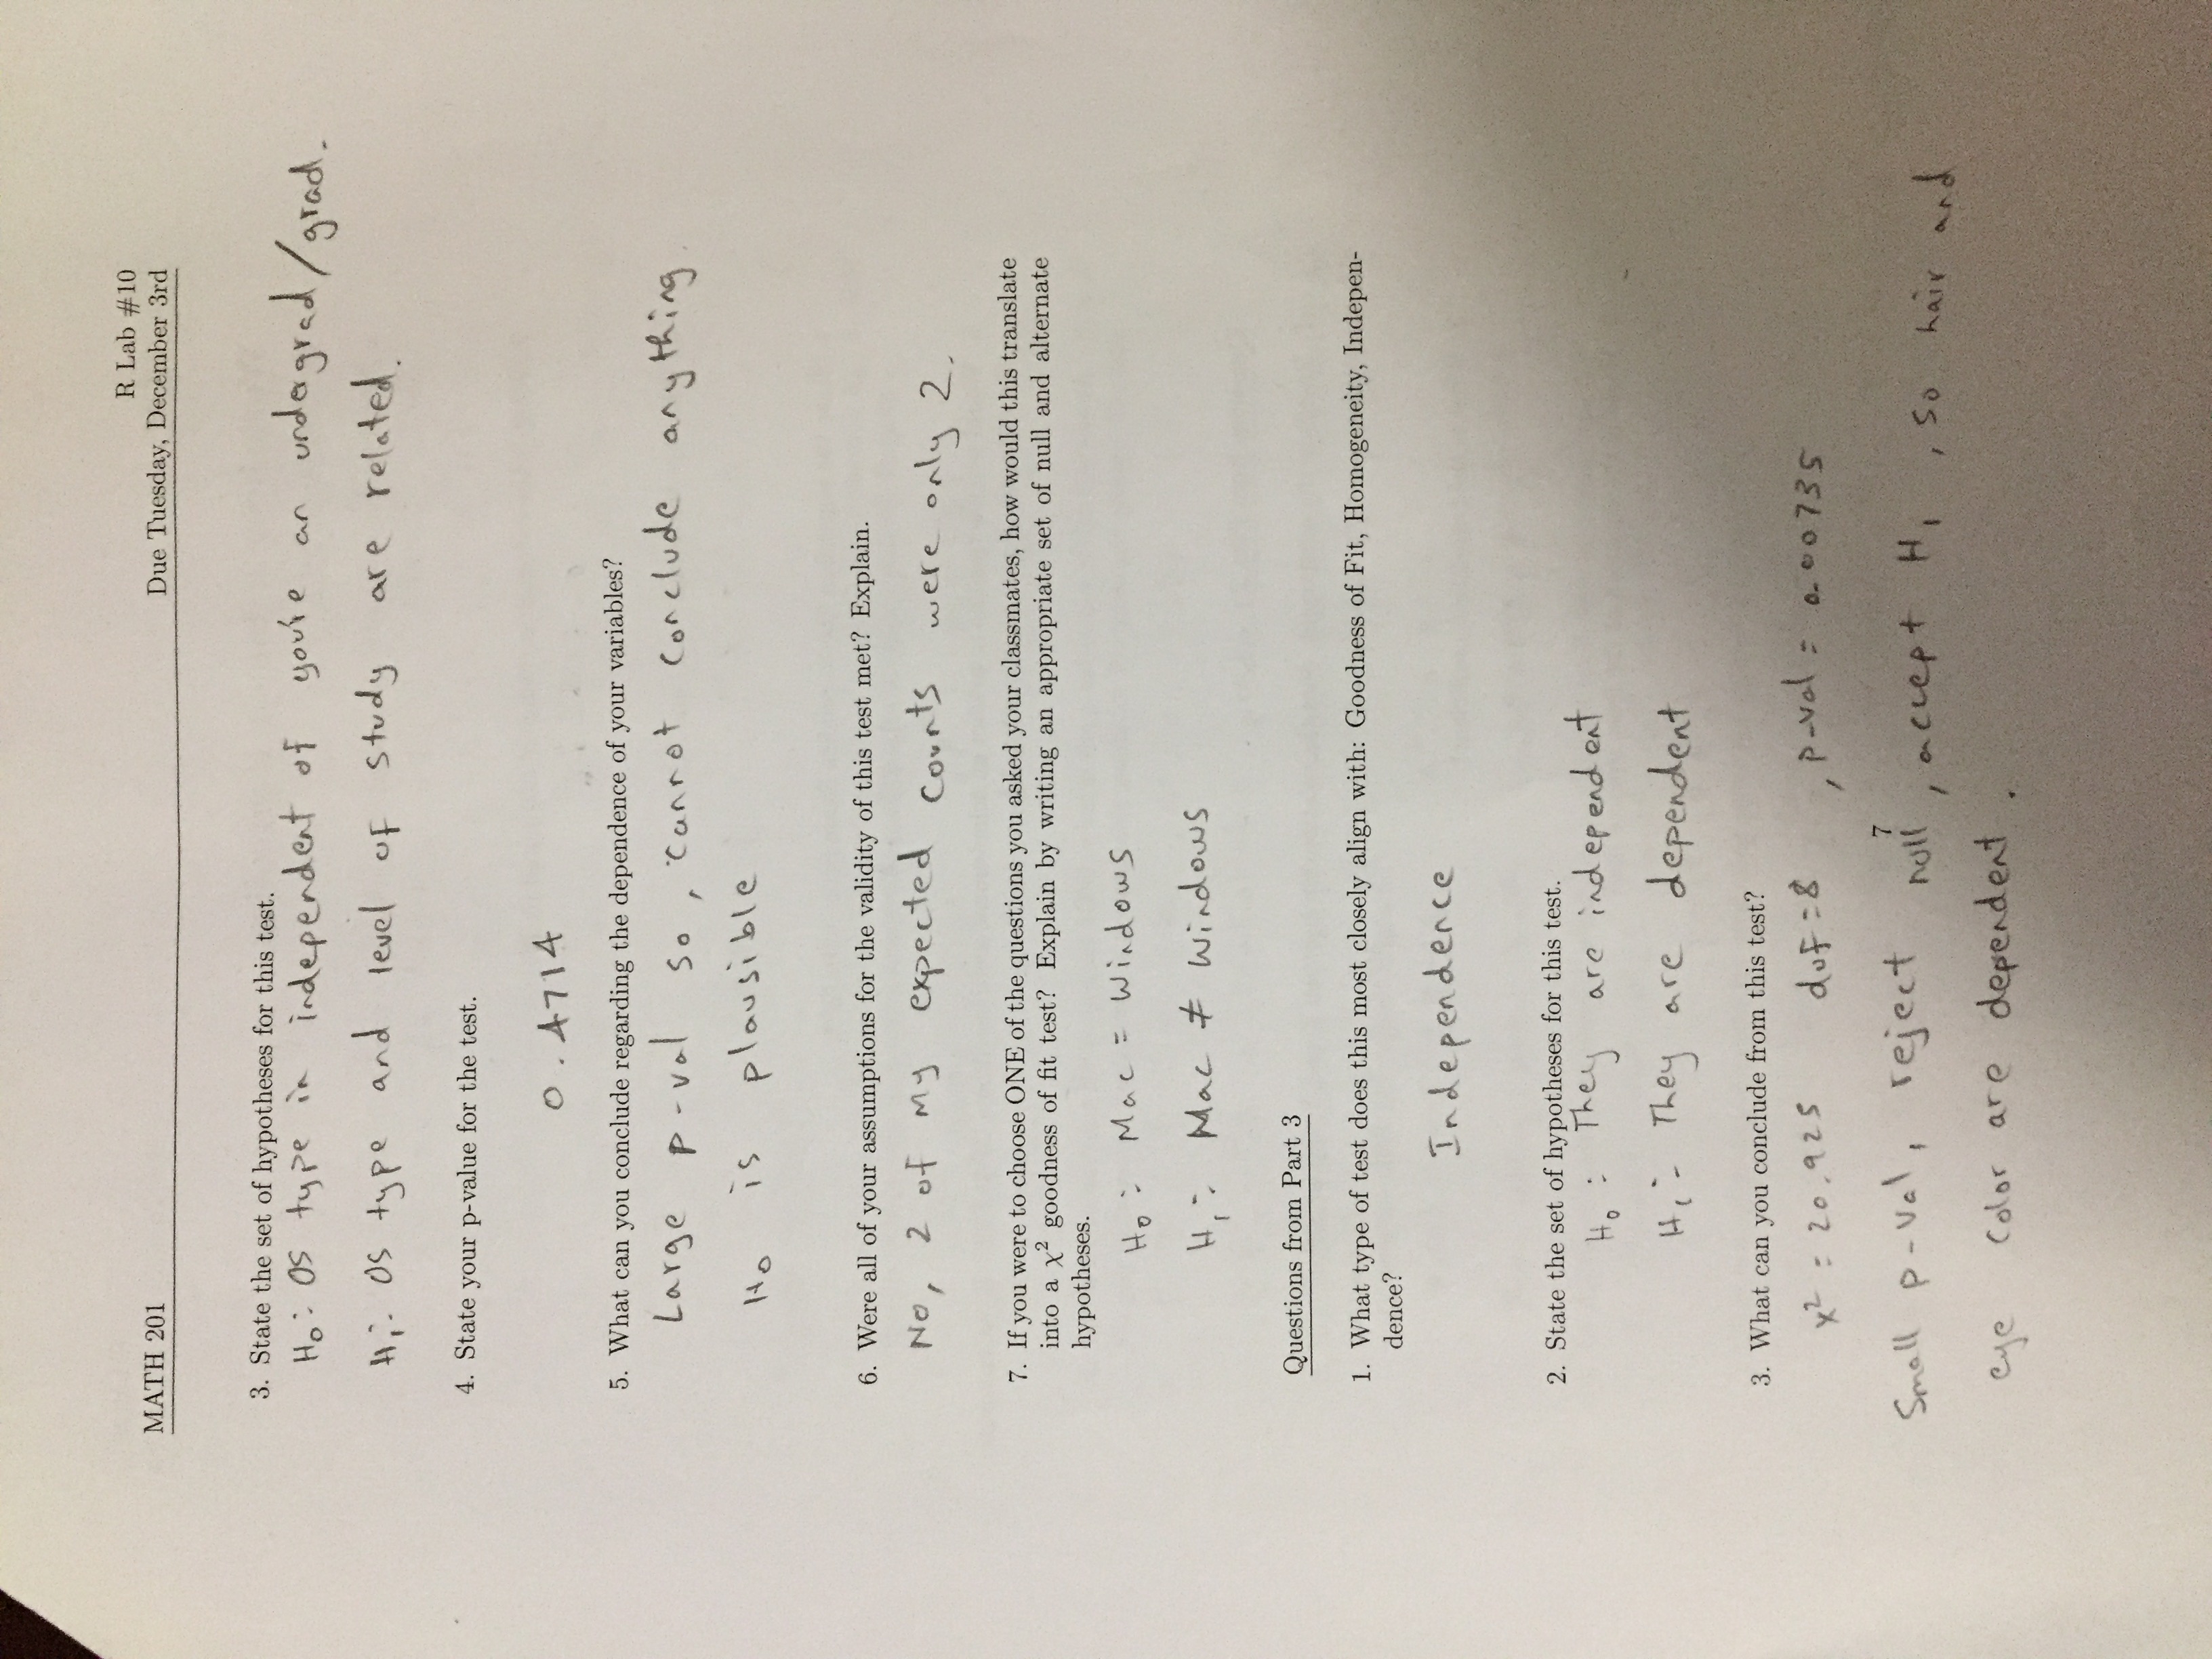 R Lab #10
MATH 201 Due Tuesday, December 3rd
3. State the set of hypotheses for this test.
H₀: OS type in independent of you're an undergrad/grad.
H₁: OS type and level of study are related.
4. State your p-value for the test.
0.4714
5. What can you conclude regarding the dependence of your variables?
Large p-val so, cannot conclude anything.
H₀ is plausible
6. Were all of your assumptions for the validity of this test met? Explain.
No, 2 of my expected counts were only 2.
7. If you were to choose ONE of the questions you asked your classmates, how would this translate
into a χ² goodness of fit test? Explain by writing an appropriate set of null and alternate
hypotheses.
H₀: Mac = Windows
H₁: Mac ≠ Windows
Questions from Part 3
1. What type of test does this most closely align with: Goodness of Fit, Homogeneity, Indepen-
dence?
Independence
2. State the set of hypotheses for this test.
H₀: They are independent
H₁: They are dependent
3. What can you conclude from this test?
x² = 20.925 dof = 8, p-val = 0.00735
7
Small p-val, reject null, accept H₁, so hair and
eye color are dependent.